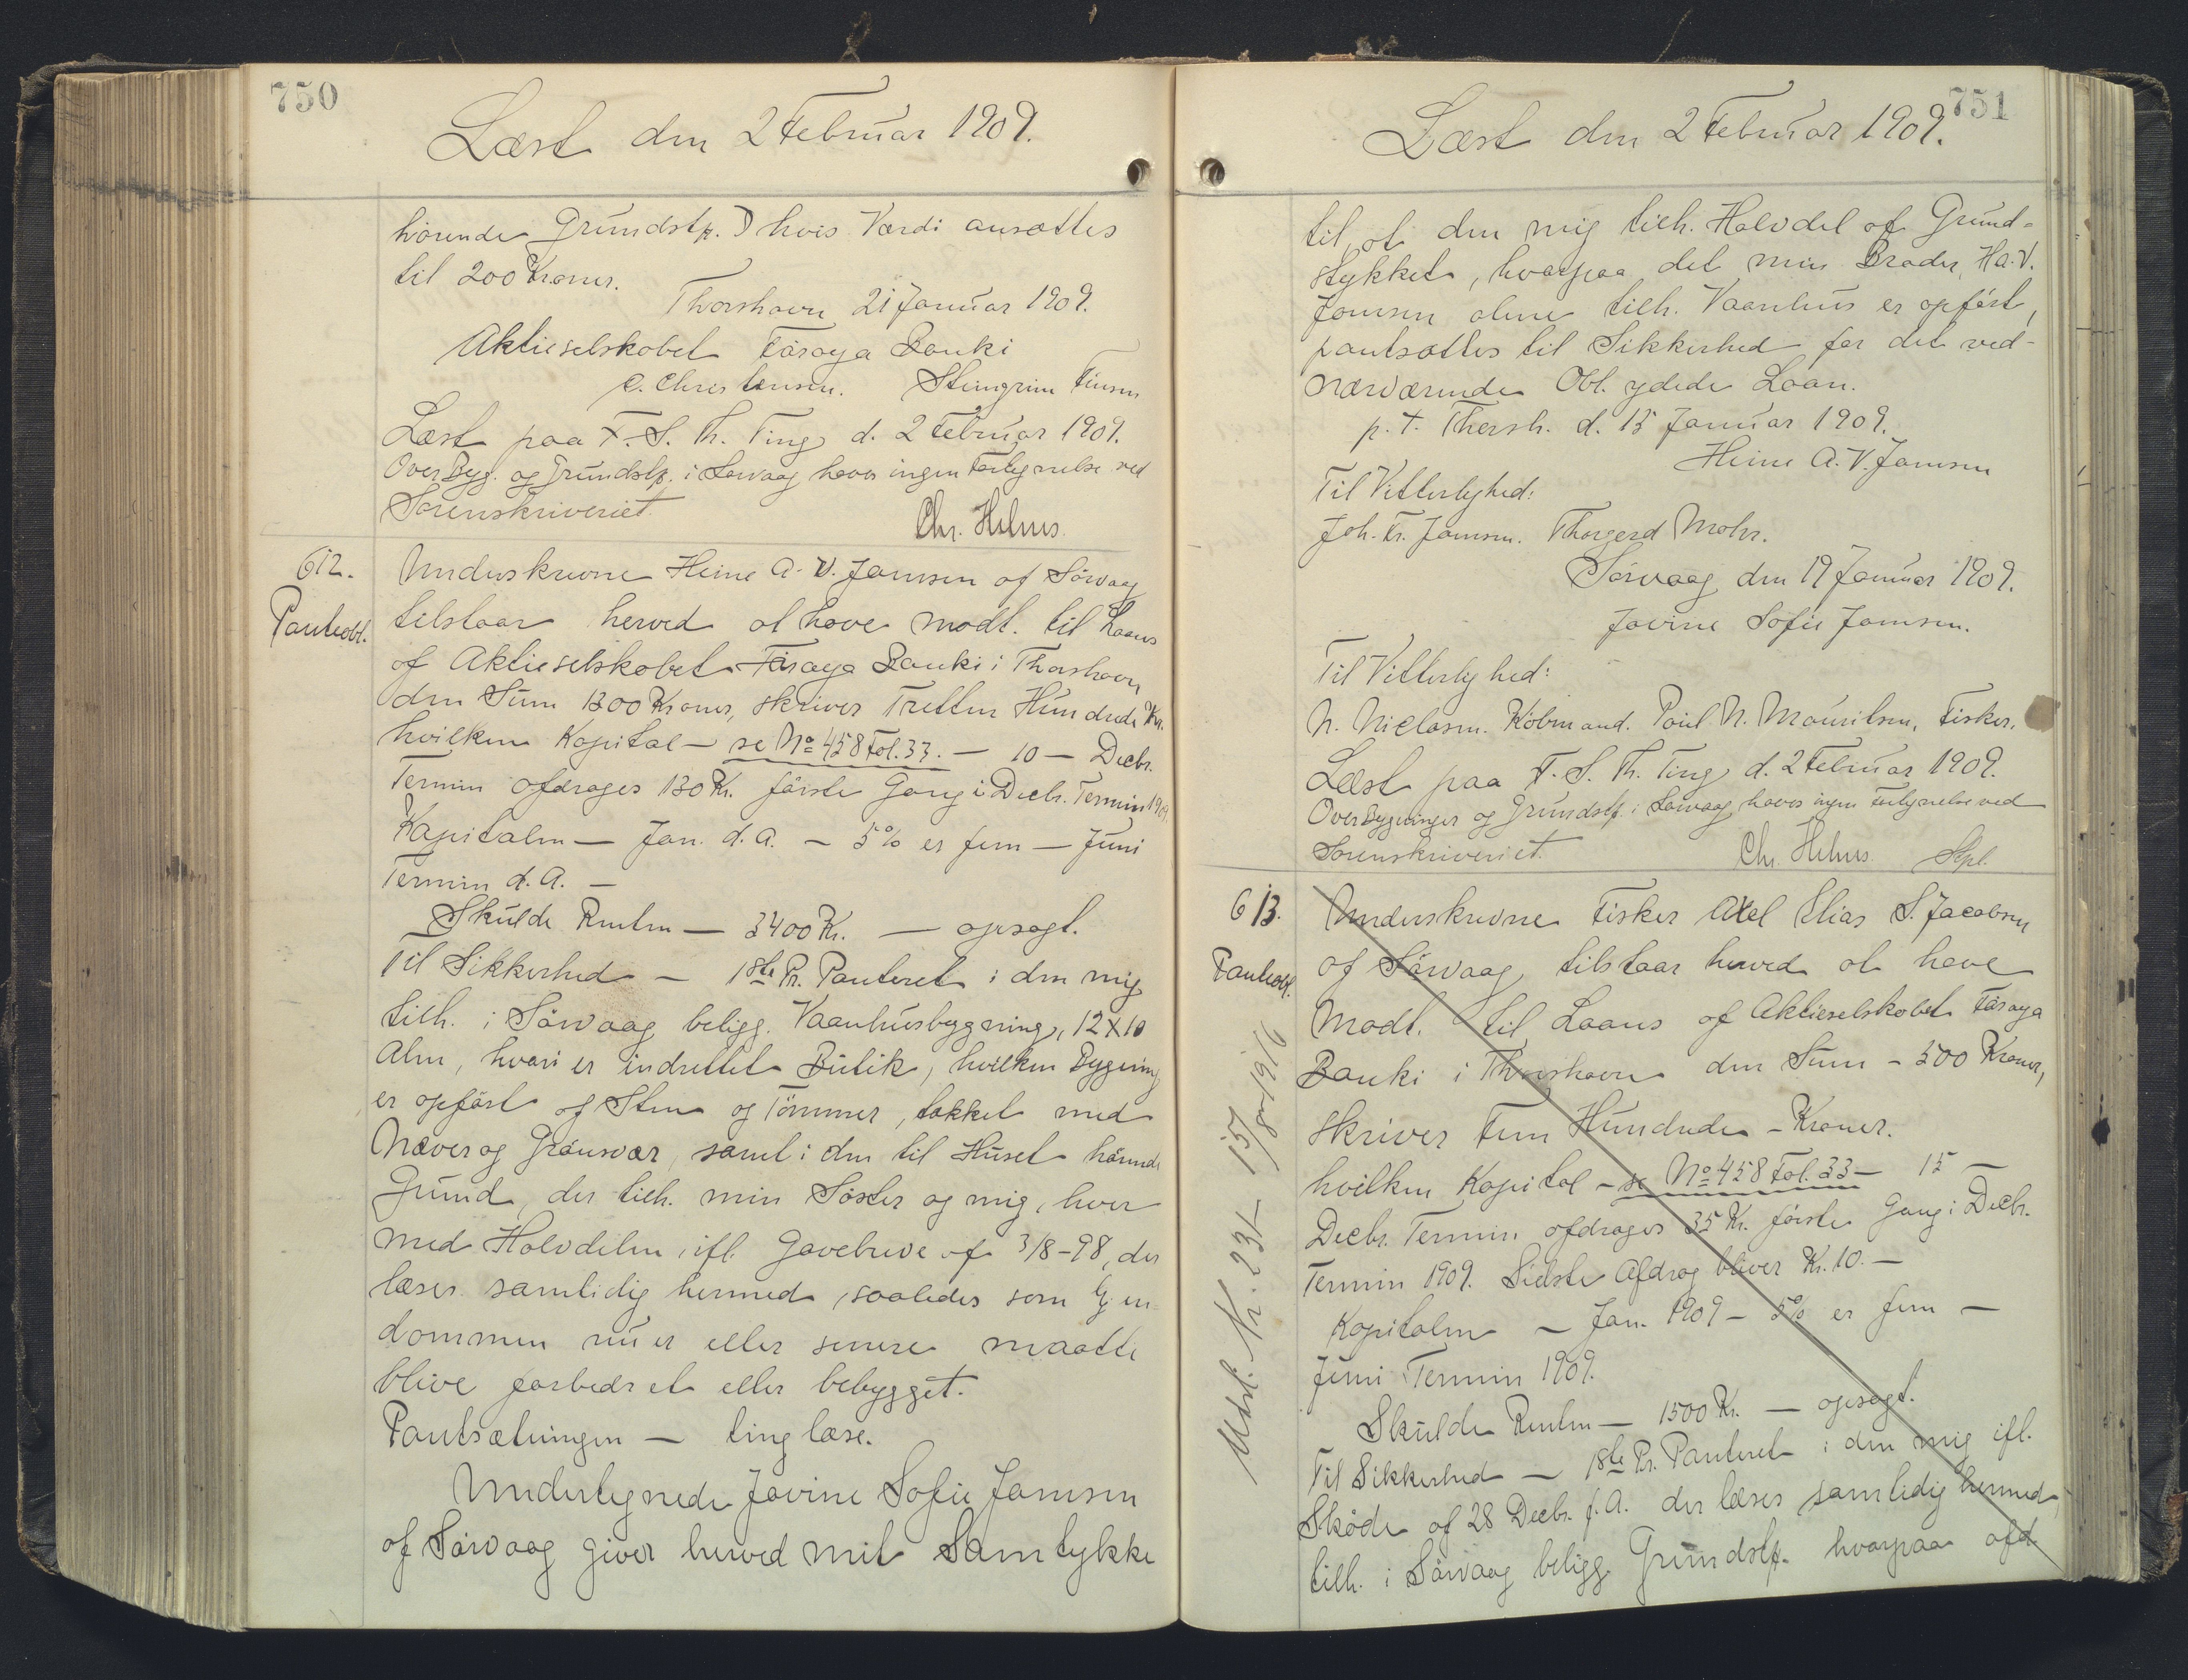 750
Læst den 2 Februar 1909.
hörende Grundstk.) hvis Værdi ansættes
til 200 Kroner.
Thorshavn 21 Januar 1909.
Aktieselskabet Föroya Banki
C. Christensen. Steingrim
Læst paa F. S. Th. Ting d. 2 Februar 1909.
Over Byg. og Grundstk. i Sörvaag haves ingen Forbyrnelse ved
Sorenskriveriet.
Chr. Helms.
612.
Panteobl.
Underskrevne Heine A. V. Joensen af Sörvaag
tilstaar herved at have modt. til Laans
af Aktieselskabet Föroya Banki i Thorshavn
den Sum 1300 Kroner, skriver Tretten Hundrede Kr.
hvilken Kapital – se No 458 Fol. 33. – 10 – Decbr.
Termin afdrages 130 Kr. förste Gang i Decbr. Termin 1909.
Kapitalen – Jan. d. A. – 5% er fem – Juni
Termin d. A. –
Skulde Renten – 3400 Kr. – opsagt.
Til Sikkerhed – 1ste Pr. Panteret i den mig
tilh. i Sörvaag beligg. Vaanhusbygning, 12 x 10
Alen, hvori er indrettet Butik, hvilken Bygning
er opfört af Sten og Tömmer, takket med
Næver og Grönsvær, samt i den til Huset hörende
Grund, der tilh. min Söster og mig, hver
med Halvdelen, ifl. Gavebreve af 3/8-98, der
læses samtidig hermed, saaledes som Ejen-
dommen nu er eller senere maatte
blive forbedret eller bebygget.
Pantsætningen – ting læse.
Undertegnede Jovine Sofie Joensen
af Sörvaag giver herved mit Samtykke
751
Læst den 2 Februar 1909.
til, at den mig tilh. Halvdel af Grund-
stykket, hvorpaa det min Broder, H. A. V.
Joensen alene tilh. Vaanhus er opfört,
pantsættes til Sikkerhed for det ved
nærværende Obl. ydede Laan.
p. t. Thorsh. d. 15 Januar 1909.
Heine A. V. Joensen
Til Vitterlighed:
Joh. Fr. Joensen. Thorgerd Mohr.
Sörvaag, den 19 Januar 1909.
Jovine Sofie Joensen.
Til Vitterlighed:
N. Niclasen. Köbmand. Poul N. Mouritsen, Fisker.
Læst paa F. S. Th. Ting d. 2 Februar 1909.
Over Bygninger og Grundstk. i Sörvaag haves ingen Forbyrnelse ved
Sorenskriveriet.
Chr. Helms. Stpl.
613.
Panteobl.
Underskrevne Fisker Axel Elias S. Jacobsen
af Sörvaag, tilstaar herved at have
Modt. til Laans af Aktieselskabet Föroya
Banki i Thorshavn den Sum – 500 Kroner,
skriver Fem Hundrede – Kroner.
hvilken Kapital – se No 458 Fol. 33 – 15 –
Decbr. Termin afdrages 35 Kr. förste Gang i Decbr.
Termin 1909. Sidste Afdrag bliver Kr. 10. –
Kapitalen – Jan. 1909 – 5% er fem –
Juni Termin 1909.
Skulde Renten – 1500 Kr. – opsagt.
Til Sikkerhed – 1ste Pr. Panteret i den mig ifl.
Sköde af 28 Decbr. f. A. der læses samtidig hermed,
tilh. i Sörvaag beligg. Grundstk. hvorpaa
Udsl. Nr. 231 – 15/8 1916